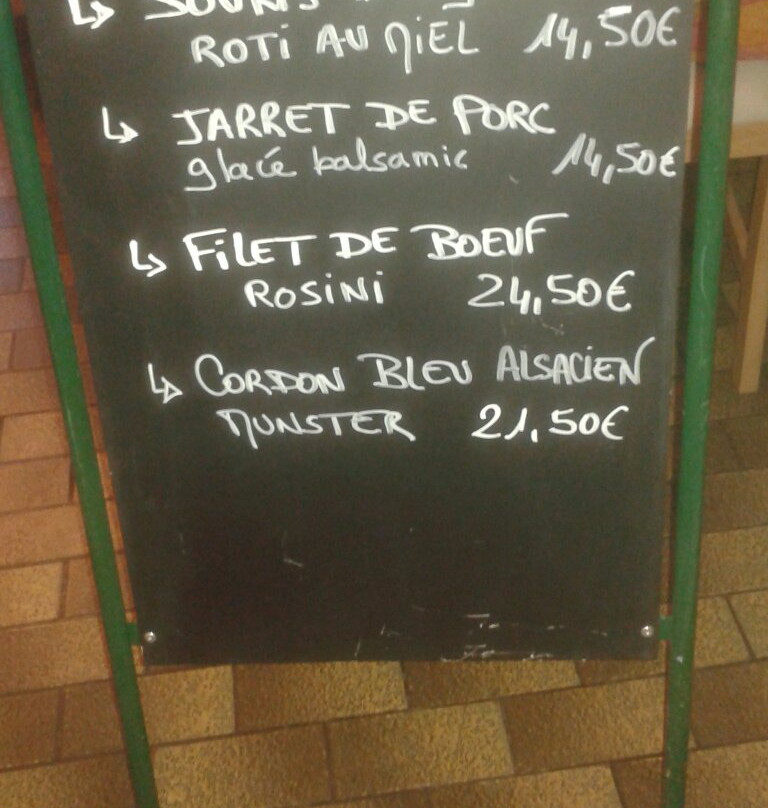 ↳ SOURIS
ROTI AU MIEL 14,50€
↳ JARRET DE PORC
glacé balsamic 14,50€
↳ FILET DE BOEUF
ROSINI 24,50€
↳ CORDON BLEU ALSACIEN
MUNSTER 21,50€